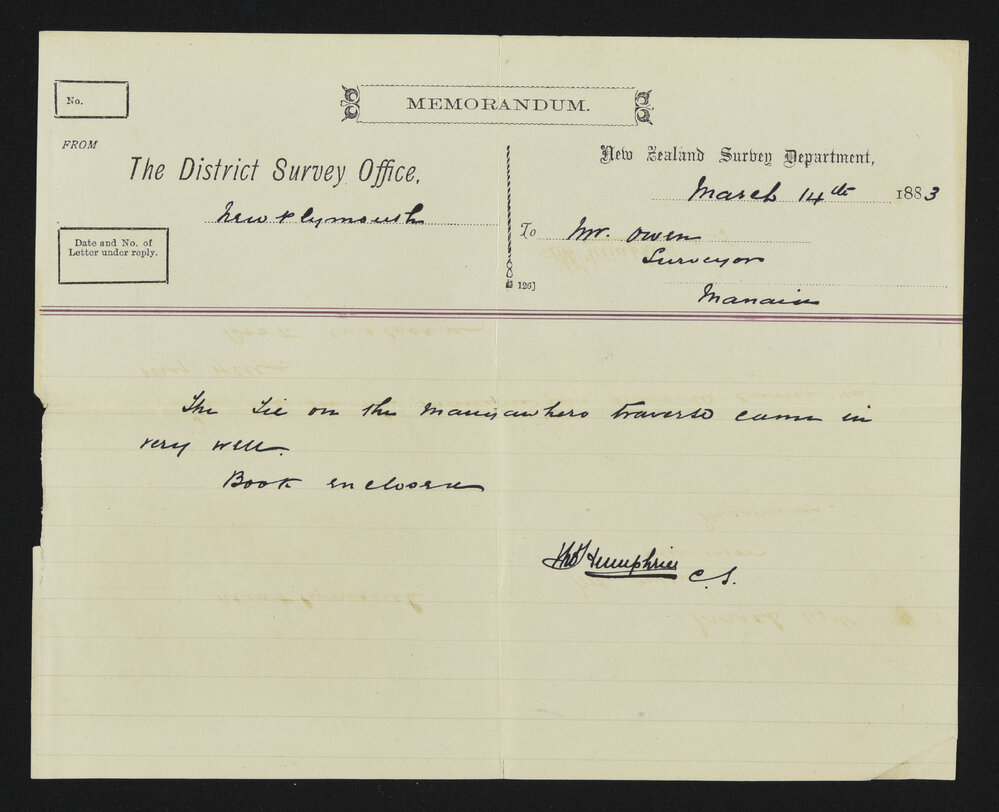 No.
MEMORANDUM.
FROM
The District Survey Office,
New Plymouth
Date and No. of
Letter under reply.
New Zealand Survey Department,
March 14th 1883
To Mr. Owen
Surveyor
Manaia
126]
The Tie on the Mangawhero traverse came in
very well.
Book enclosed
Thos Humphries C.S.